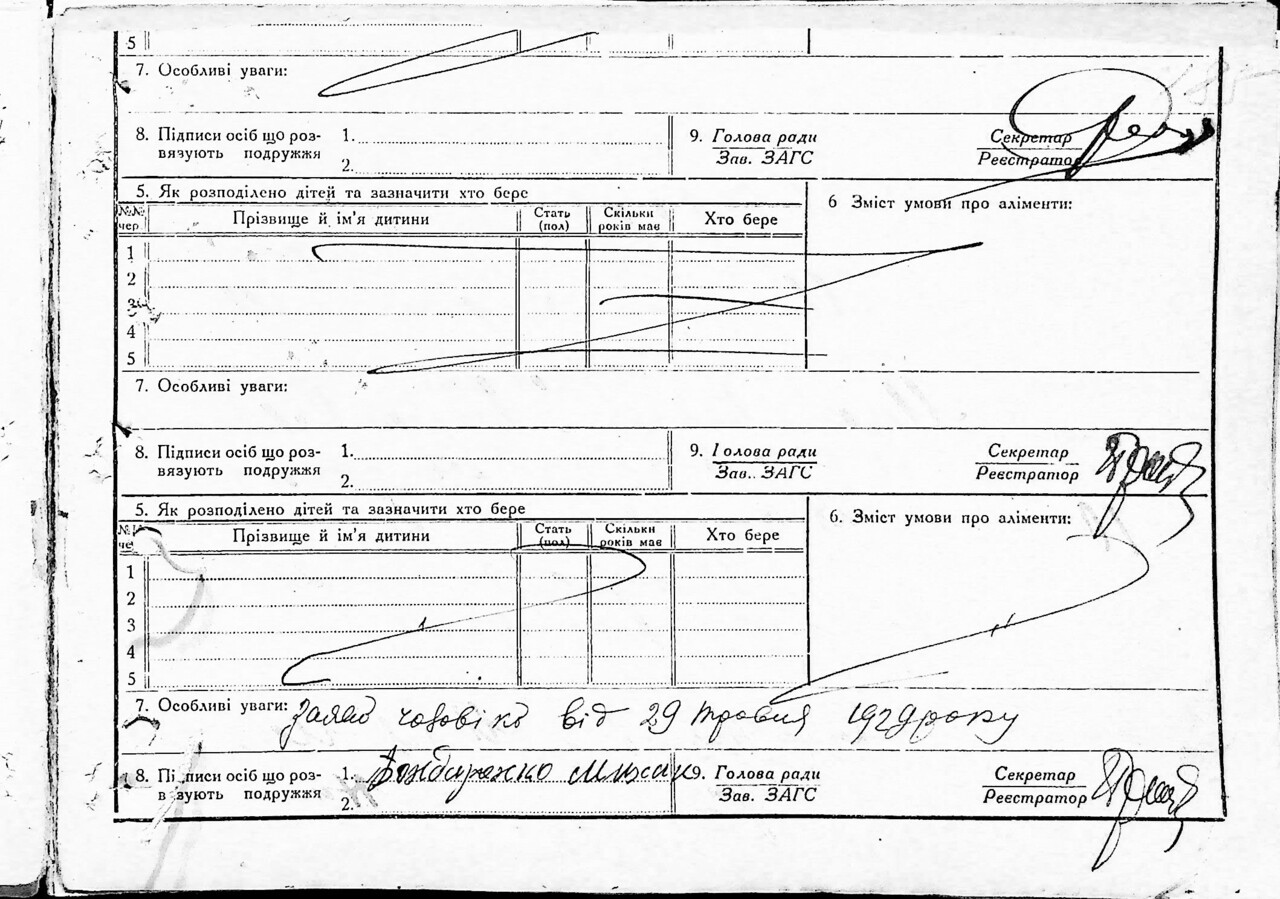 5
7. Особливі уваги:
8. Підписи осіб що роз-
вязують подружжя
1.
2.
9. Голова ради
Зав. ЗАГС
Секретар
Реєстратор
5. Як розподілено дітей та зазначити хто бере
6 Зміст умови про аліменти:
№№ чер Прізвище й ім'я дитини Стать (пол) Скільки років має Хто бере
1
2
3
4
5
7. Особливі уваги:
8. Підписи осіб що роз-
вязують подружжя
1.
2.
9. Голова ради
Зав. ЗАГС
Секретар
Реєстратор
5. Як розподілено дітей та зазначити хто бере
6. Зміст умови про аліменти:
Прізвище й ім'я дитини Стать (пол) Скільки років має Хто бере
1
2
3
4
5
7. Особливі уваги: від 29 травня 1929 року
8. Пі писи осіб що роз-
в зують подружжя
1.
2.
9. Голова ради
Зав. ЗАГС
Секретар
Реєстратор